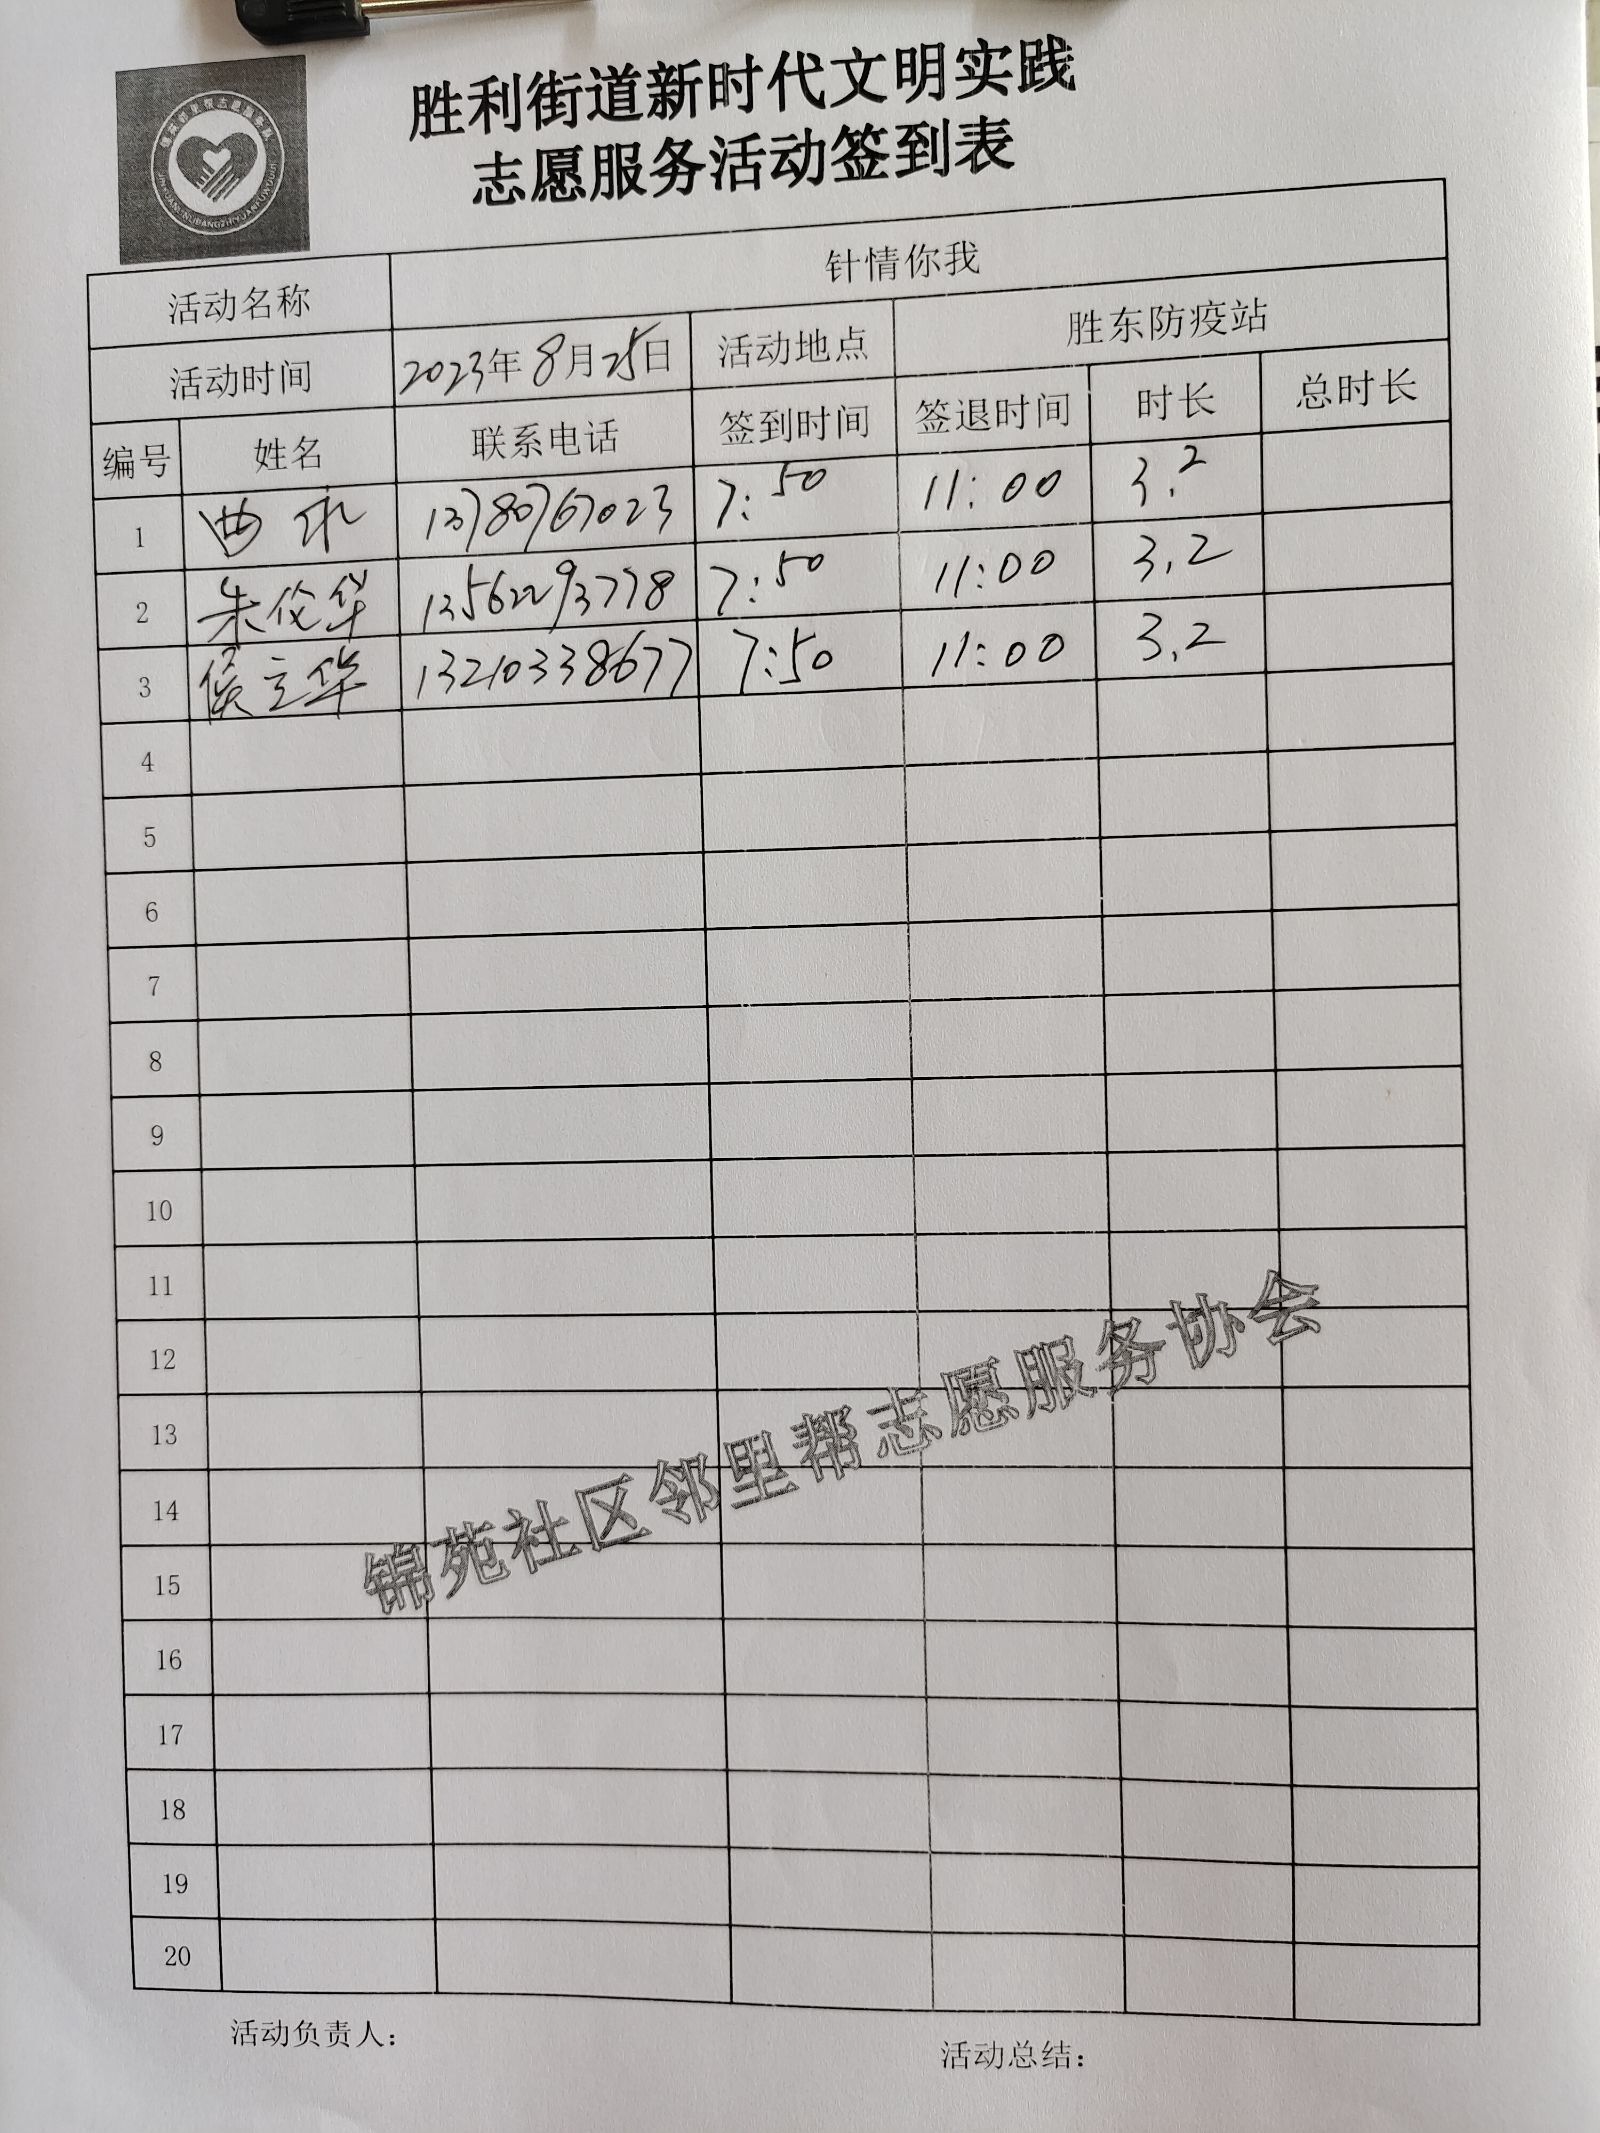 胜利街道新时代文明实践
志愿服务活动签到表
活动名称 针情你我
活动时间 2023年8月25日 活动地点 胜东防疫站
编号 姓名 联系电话 签到时间 签退时间 时长 总时长
1 曲 13780767023 7:50 11:00 3.2
2 朱伦华 13562293778 7:50 11:00 3.2
3 侯立华 13210338677 7:50 11:00 3.2
4
5
6
7
8
9
10
11
12
13
14
15
16
17
18
19
20
锦苑社区邻里帮志愿服务协会
活动负责人: 活动总结: